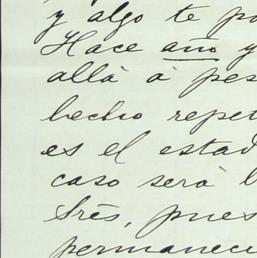 y algo te po
Hace año y
allà à pes
hecho repet
es el estad
caso serà l
très, pues
permaneci